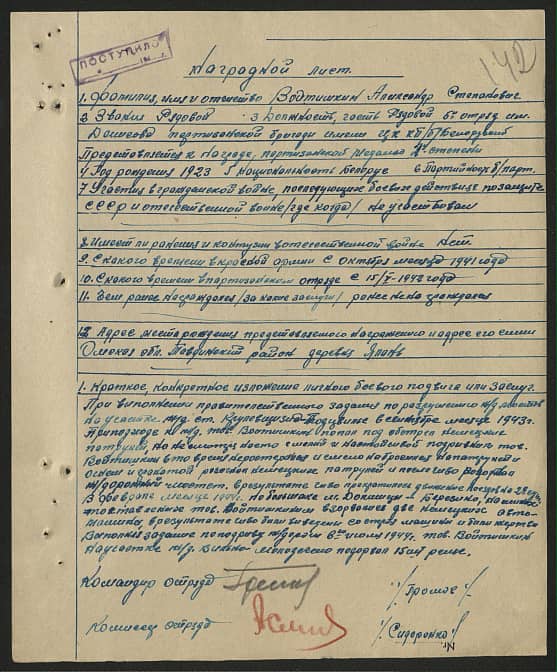 ПОСТУПИЛО
142
Наградной лист.
1. Фамилия, имя и отчество Войтишкин Александр Степанович
2 Звания Рядовой 3 Должность, часть Рядовой отряд им.
партизанской бригады имени ЦК КП/б/Белоруссии
Представляется к награде, партизанской медали степени
4 Год рождения 1923 5 Национальность Беларус 6 Партийность б/парт.
7 Участия в гражданской войне, последующие боевые действия по защите
СССР и отечественной войне/где когда/ не участвовал
8. Имеет ли ранения и контузии в отечественной войне нет
9. С какого времени в красной армии с октября месяца 1941 года
10. С какого времени в партизанском отряде с 15/ -1942 года
11. Чем ранее награждался/за какие заслуги/ ранее не награждался
12. Адрес место рождения представляемого к награждению и адрес его семьи
Омская обл. район деревня
1. Краткое, конкретное изложение личного боевого подвига или заслуг.
При выполнении правительственного задания по разрушению ж/д мостов
на участке ж/д ст. в сентябре месяце 1943 г.
При подходе к ж/д тов. Войтишкин попал под обстрел немецких
патрулей, но не смотря на это смелой и настойчивой тов.
Войтишкин в то время не растерялся и смело набросился на патрулей и
огнем и гранатой разогнал немецких патрулей и после чего взорвал
ж/дорожный мост, в результате чего прекратилось движение поездов на
В феврале месяце 1944г. на большаке м. Докшицы - Березино, на
поставленное тов. Войтишкиным взорвалось две немецких авто-
машины, в результате чего были выведены со строя машины и были жертвы
Выполняя задание по подрыву ж/дороги в июле 1944 г. тов. Войтишкин
на участке ж/д. Вильно - Молодечно подорвал 15 шт рельс.
Командир отряда /Громов/
Комиссар отряда /Сидоренко/